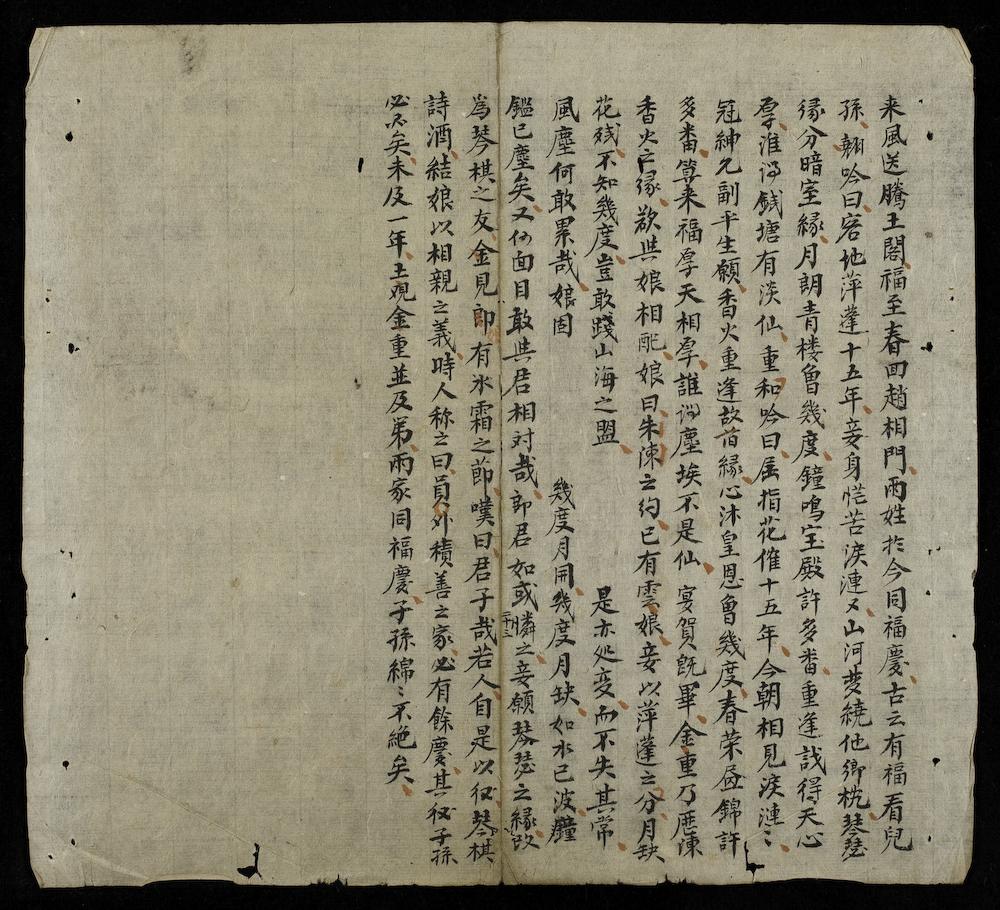 来風送騰王閣福至春回趙相門両姓扵今同福慶古云有福看兒
孫翹吟曰客地萍蓬十五年妾身恾苦淚漣〻山河夢繞他鄉枕琴瑟
缘分暗室緣月朗青楼曾幾度鐘鳴宝殿許多番重逢哉得天心
厚淮浔錢塘有淡仙重和吟曰屈指花催十五年今朝相見淚漣〻
冠紳允副平生願香火重逢故旧緣心沐皇恩曽幾度春荣昼錦許
多番算来福厚天相厚誰謂塵埃不是仙宴賀既畢金重乃歷陳
香火之缘欲與娘相配娘曰朱陳之約已有雲娘妾以萍蓬之分月缺
花残不知幾度豈敢踐山海之盟是亦処变而不失其常
風塵何敢累哉娘固幾度月開幾度月缺如水已波
鑑已塵矣又何面目敢與君相对哉郎君如或憐之妾願琴瑟之緣改
為琴棋之友金見郎有氷霜之節嘆曰君子哉若人自是以後琴棋
詩酒結娘以相親之義時人称之曰員外積善之家必有餘慶其後子孫
必不矣未及一年王观金重並及弟両家同福慶子孫綿〻不絶矣